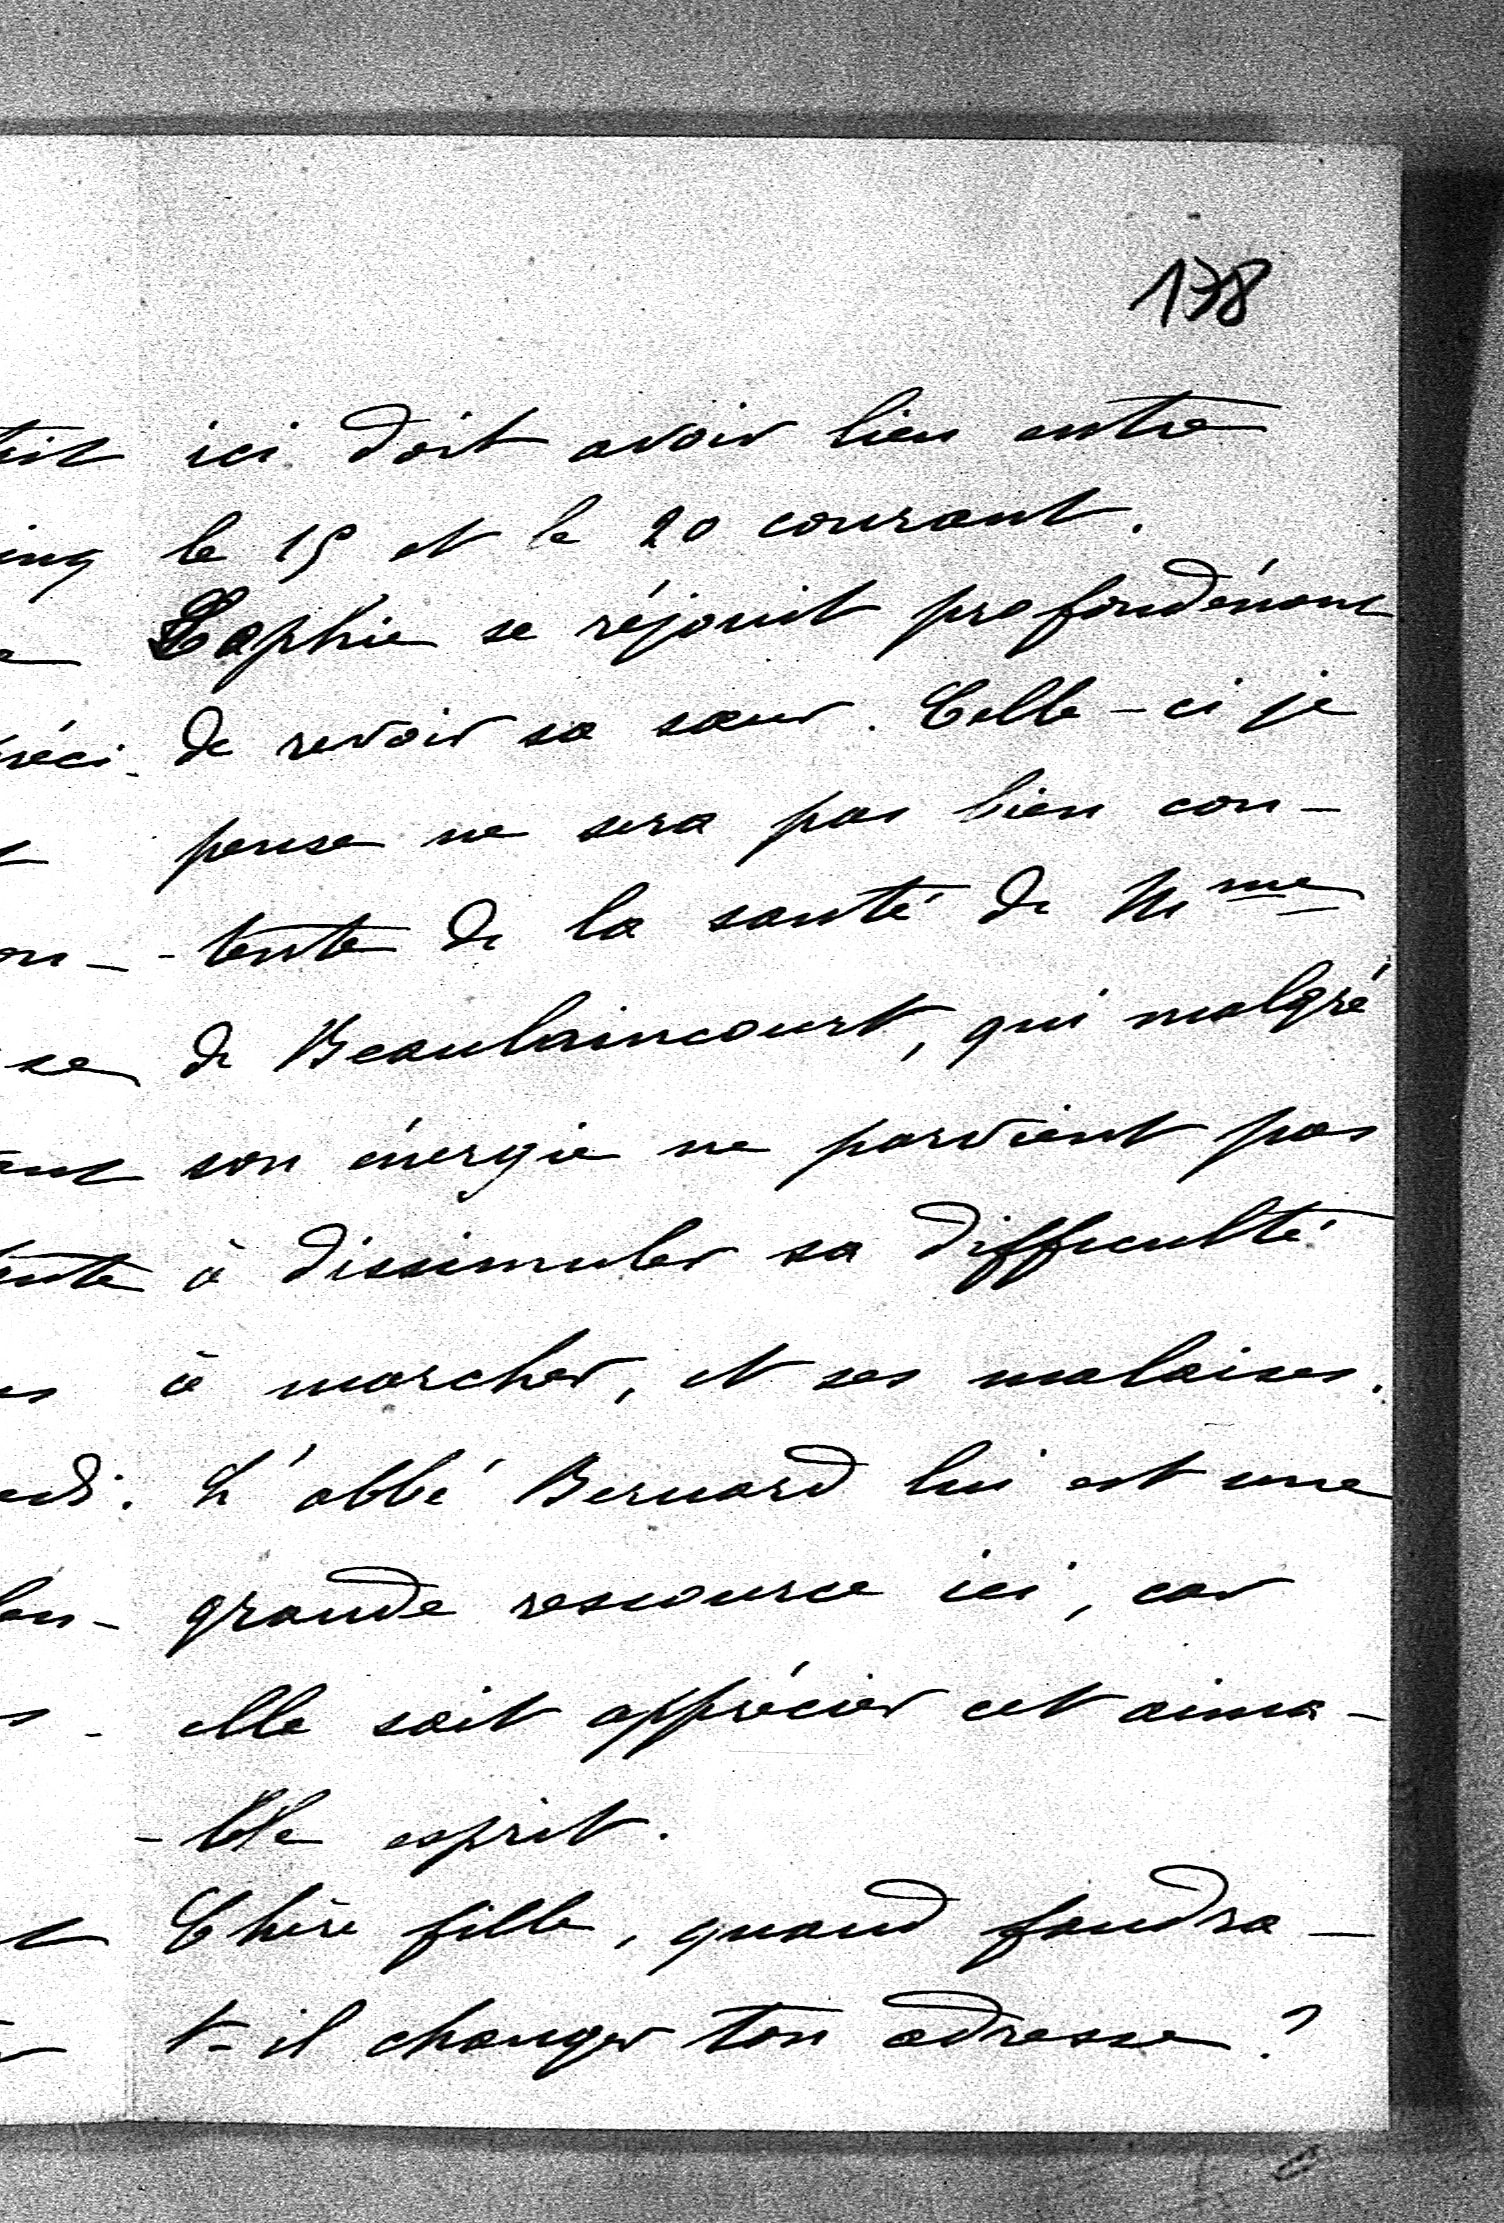 138
ici doit avoir lieu entre
le 15 et le 20 courant.
Sophie se réjouit profondément
de revoir sa sœur. Celle-ci je
pense ne sera pas bien con-
-tente de la santé de Mme
de Beaulaincourt, qui malgré
son énergie ne parvient pas
à dissimuler sa difficulté
à marcher, et ses malaises.
L'abbé Bernard lui est une
grande ressource ici, car
elle sait apprécier cet aima-
-ble esprit.
Chère fille, quand faudra-
t-il changer ton adresse ?